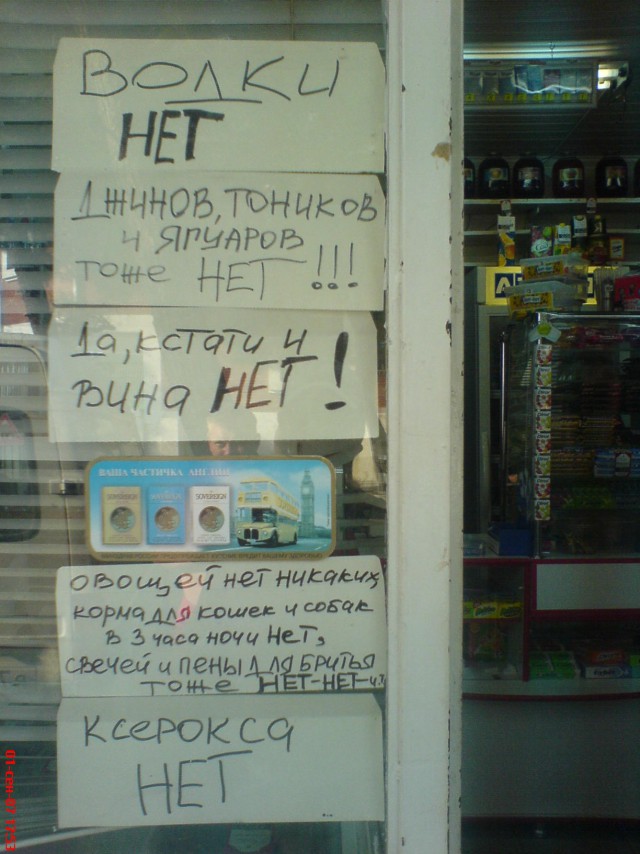 ВОДКИ
НЕТ
ДЖИНОВ, ТОНИКОВ
И ЯГУАРОВ
тоже НЕТ!!!
Да, кстати и
вина НЕТ!
ВАША ЧАСТИЧКА АНГЛИИ
SOVEREIGN SOVEREIGN SOVEREIGN
овощей нет никаких,
корма для кошек и собак
в 3 часа ночи нет,
свечей и пены для бритья
тоже НЕТ-НЕТ-и
ксерокса
НЕТ